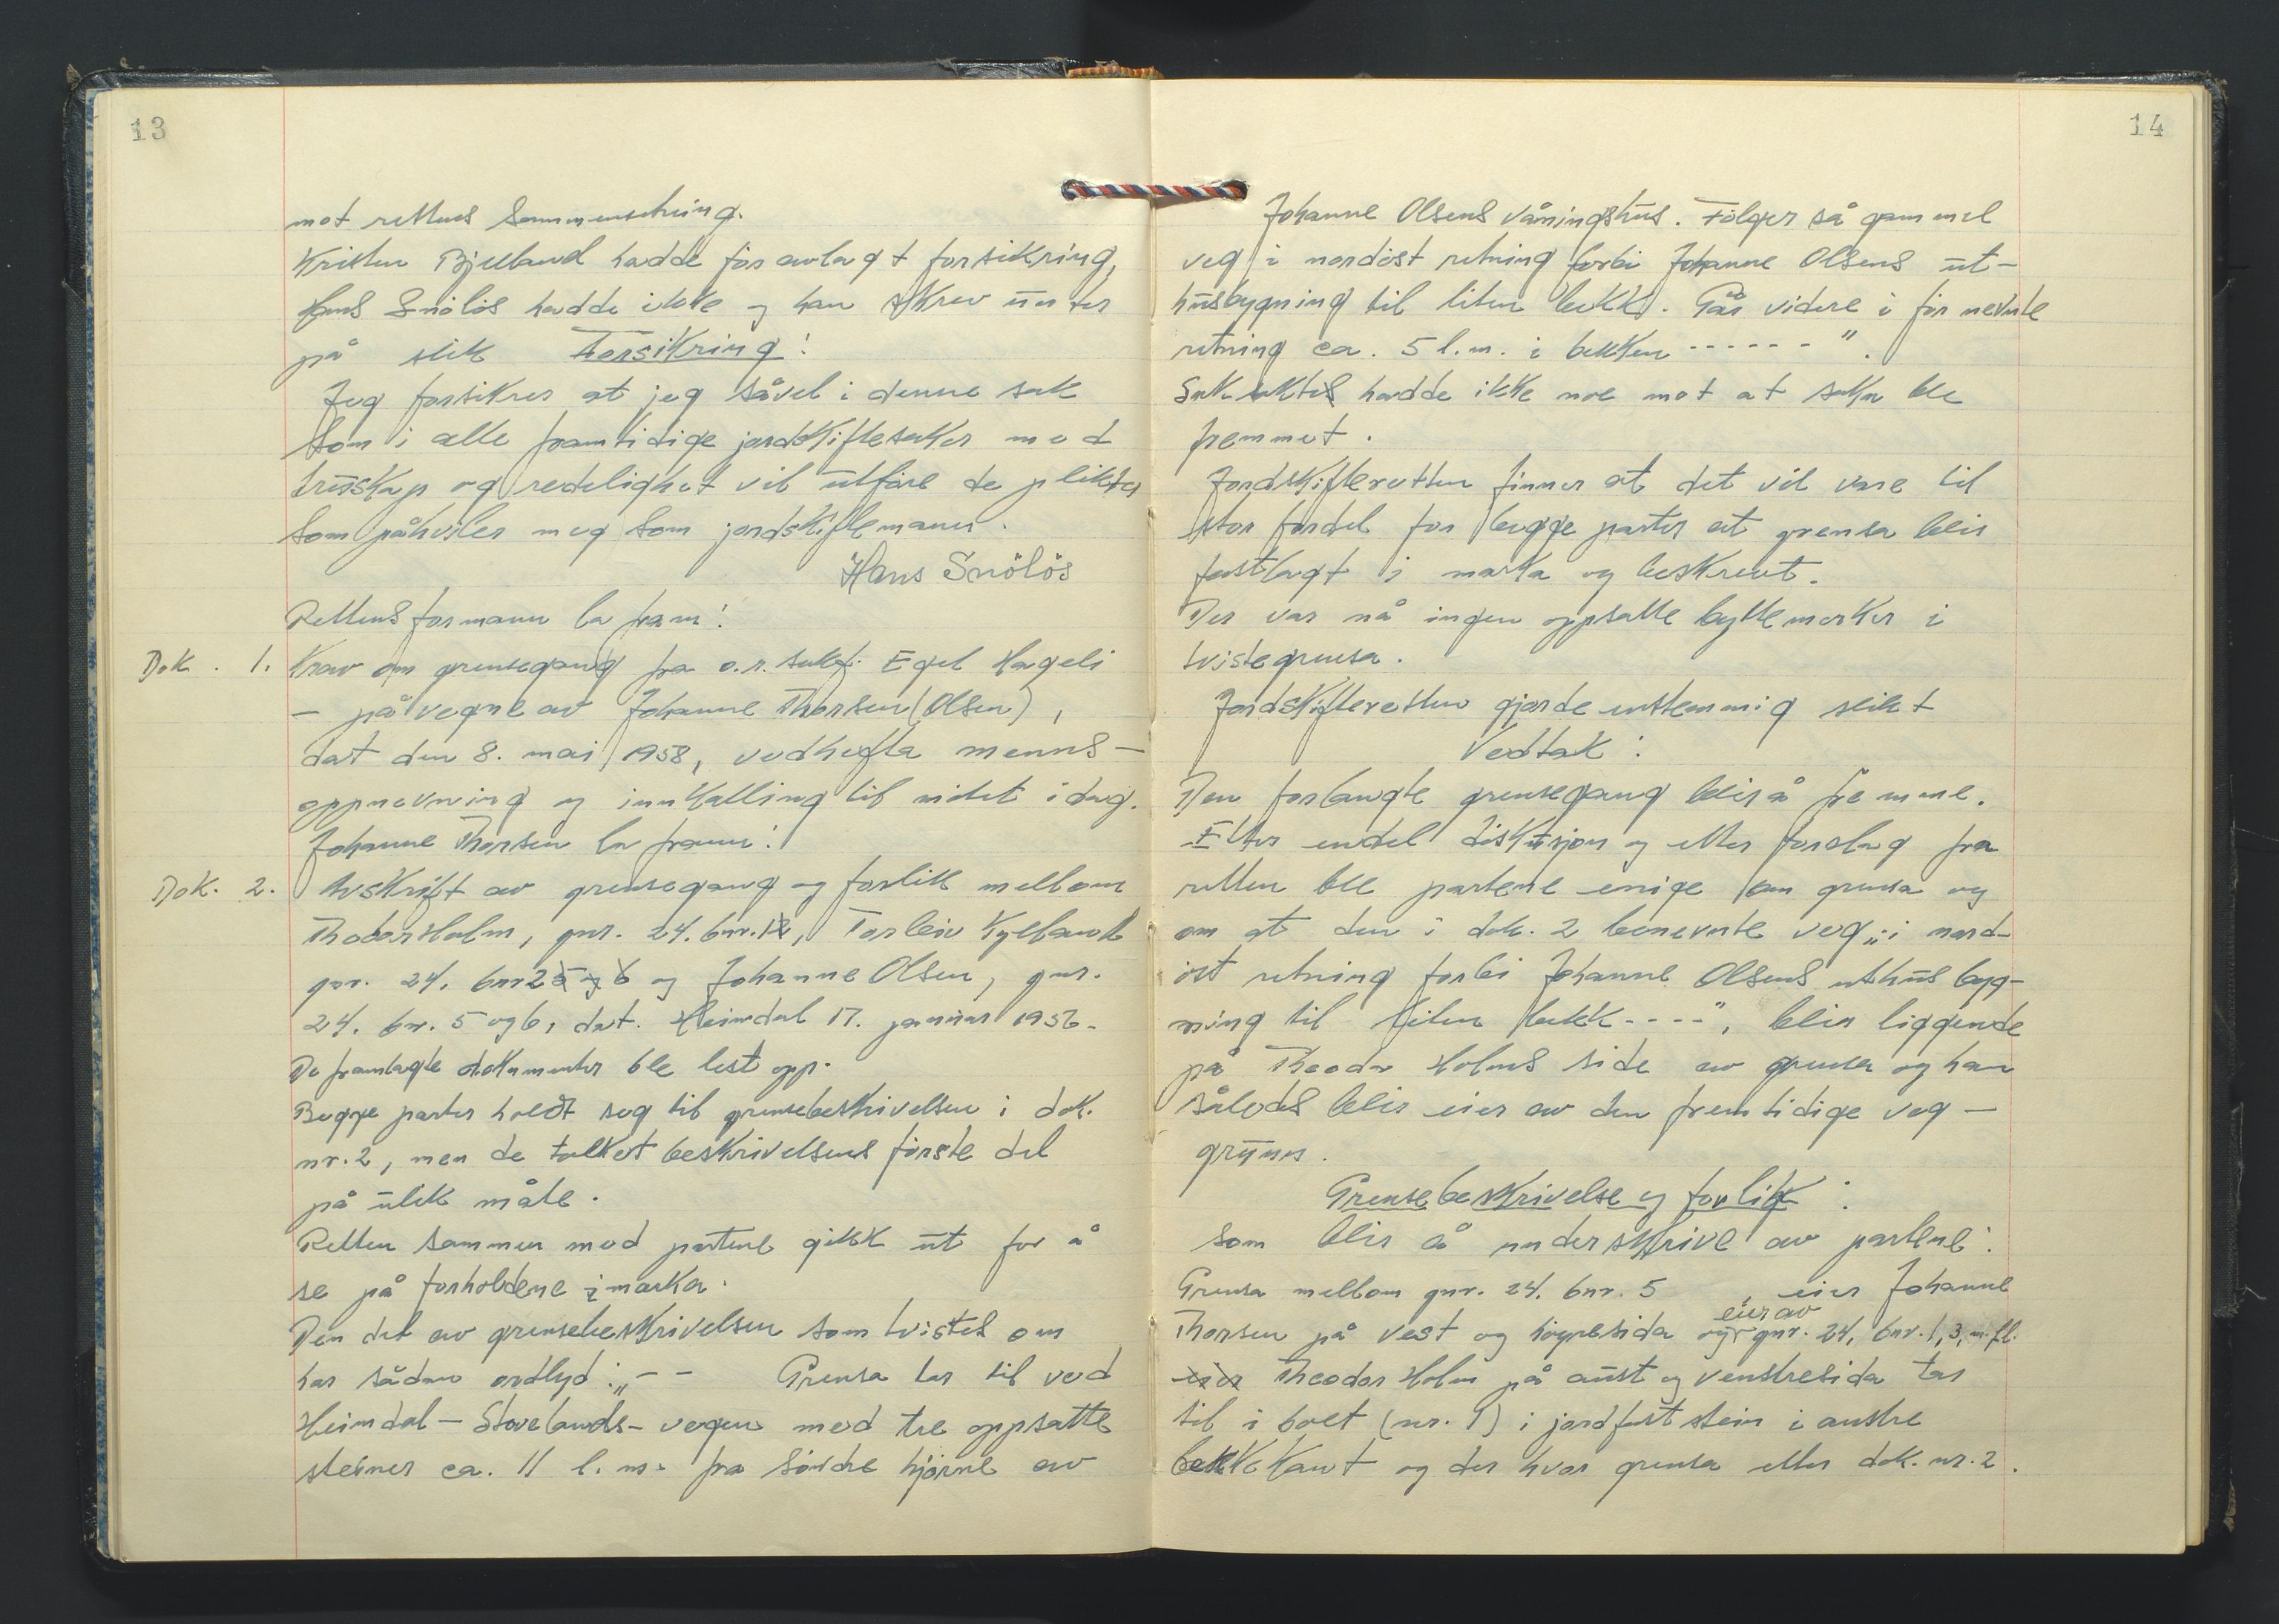 13
mot rettens sammensetning.
Kristen Bjelland hadde før avlagt forsikring,
Hans Snölös hadde ikke og han skrev under
på slik Forsikring:
Jeg forsikrer at jeg såvel i denne sak
som i alle framtidige jordskiftesaker med
truskap og redelighet vil utføre de plikter
som påhviler meg som jordskiftemann.
Hans Snölös
Rettens formann la fram:
Dok. 1. Krav om grensegang fra o.r. sakf. Egel Hageli
– på vegne av Johanne Thorsen (Olsen),
dat den 8. mai 1958, vedhefta menns-
oppnevning og innkalling til møtet i dag.
Johanne Thorsen la fram:
Dok. 2. Avskrift av grensegang og forlik mellom
Theodor Holm, gnr. 24. bnr. 12, Torleiv Kylland
gnr. 24. bnr 2 5 og 6 og Johanne Olsen, gnr.
24. bnr. 5 og 6, dat. Heimdal 17. januar 1956.
De framlagte dokumenter ble lest opp.
Begge parter holdt seg til grensebeskrivelsen i dok.
nr. 2, men de tolket beskrivelsens første del
på ulik måte.
Retten sammen med partene gikk ut for å
se på forholdene i marka.
Den del av grensebeskrivelsen som tvistes om
har sådan ordlyd: „ – – Grensa tar til ved
Heimdal – Stovelands- vegen med tre oppsatte
steiner ca. 11 l. m. fra søndre hjørne av
14
Johanne Olsens våningshus. Følger så gammel
veg i nordøst retning forbi Johanne Olsens ut-
husbygning til liten bekk. Går videre i før nevnte
retning ca. 5 l.m. i bekken ------".
Saksøktes hadde ikke noe mot at saka ble
fremmet.
Jordskifteretten finner at det vil være til
stor fordel for begge parter at grensa blir
fastlagt i marka og beskrevt.
Der var nå ingen oppsatte byttemerker i
tvistegrensa.
Jordskifteretten gjorde enstemmig slikt
Vedtak:
Den forlangte grensegang blir å fremme.
Etter endel diskusjon og etter forslag fra
retten ble partene enige om grensa og
om at den i dok. 2 benevnte veg „i nord-
øst retning forbi Johanne Olsens uthusbyg-
ning til liten bekk ----", blir liggende
på Theodor Holms side av grensa og han
således blir eier av den fremtidige veg-
grunn.
Grensebeskrivelse og forlik:
som blir å underskrive av partene:
Grensa mellom gnr. 24. bnr. 5 , eier Johanne
Thorsen på vest og høgresida og eier av gnr. 24, bnr. 1, 3, m. fl.
eier Theodor Holm på aust og venstresida tar
til i bolt (nr. 1) i jordfast stein i austre
bekkekant og der hvor grensa etter dok. nr. 2.